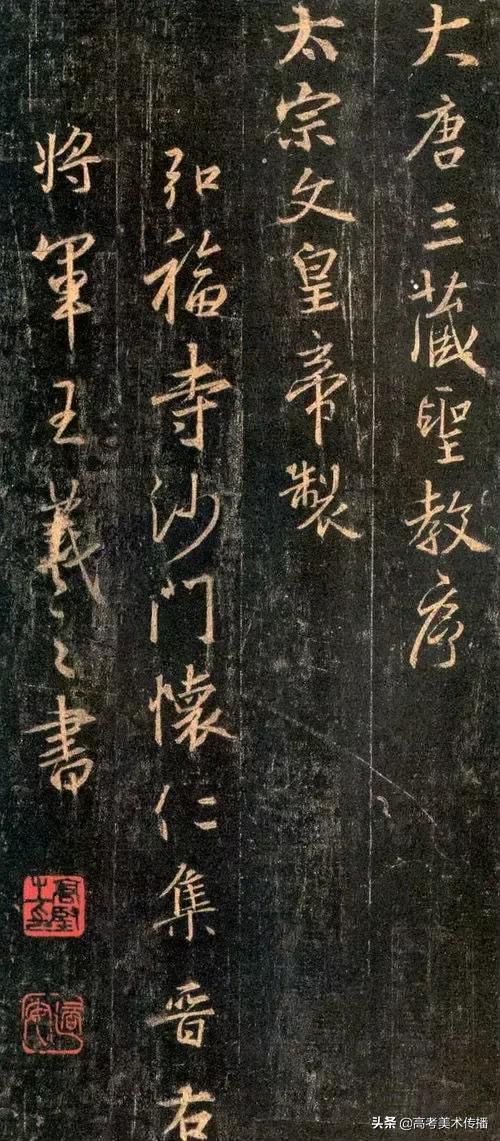 大唐三藏聖教序
太宗文皇帝製
弘福寺沙門懷仁集晉右
将軍王羲之書
头条 @高考美术传播